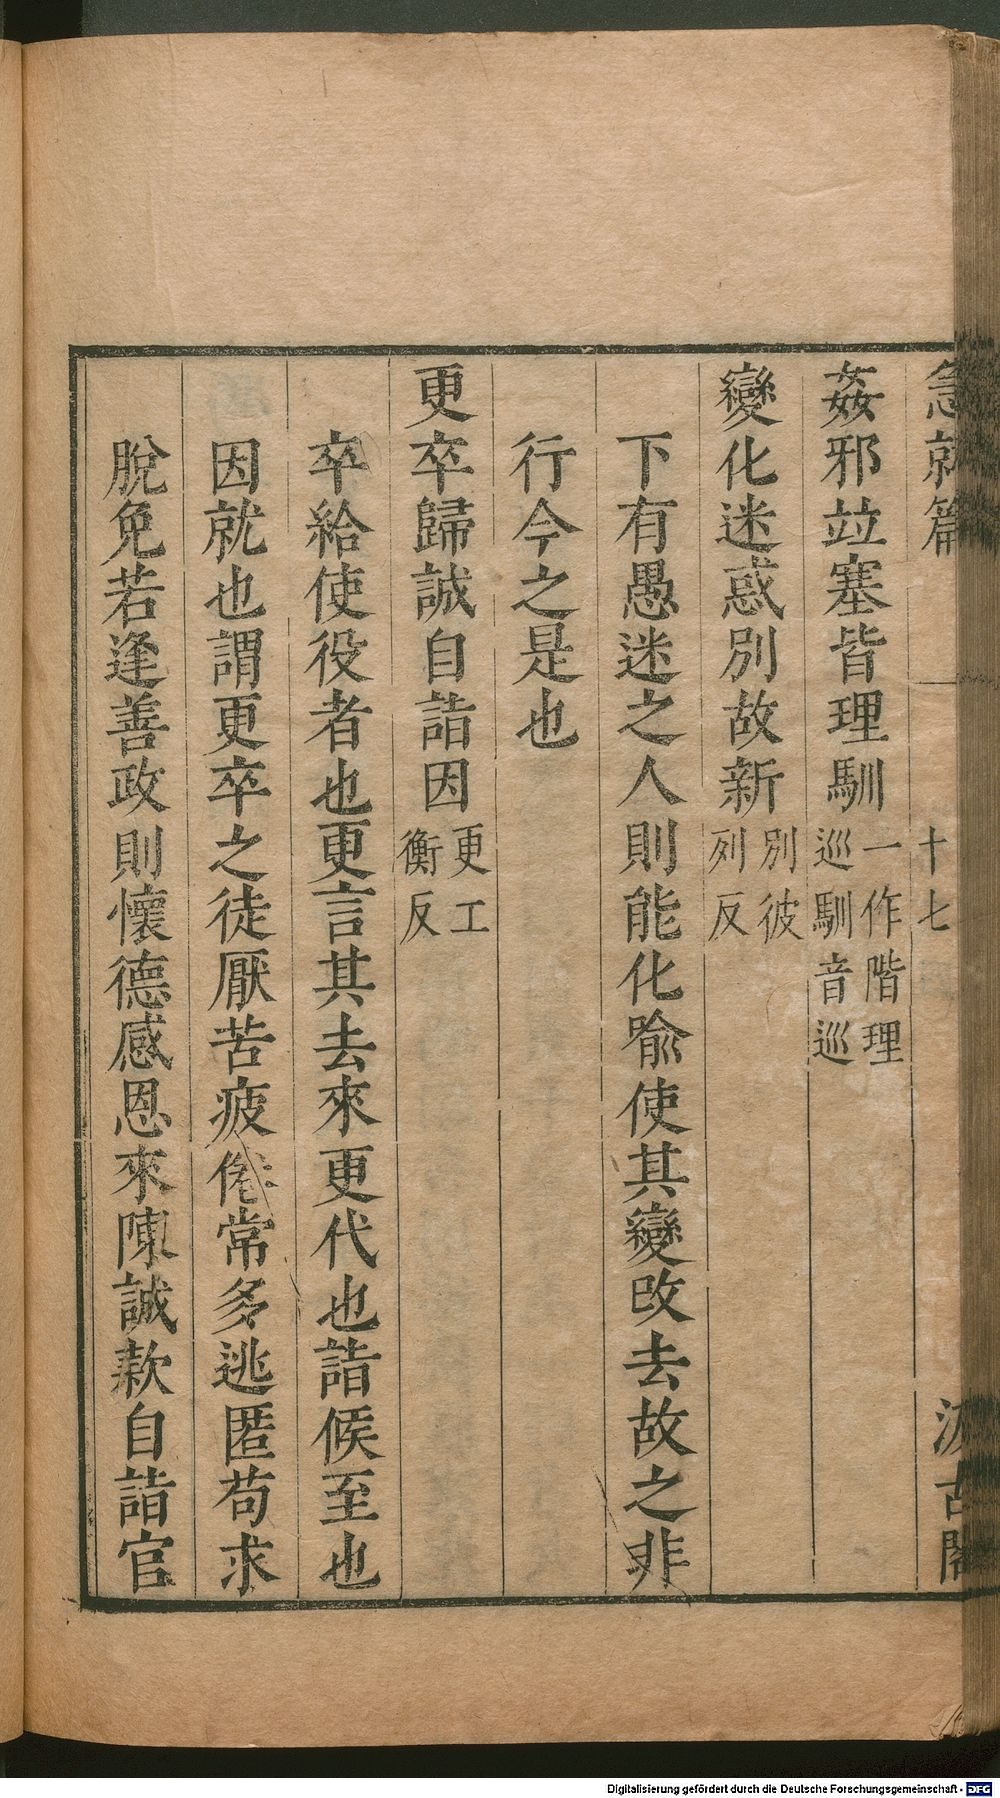 急就篇 一 十七 汲古閣
姦邪竝塞皆理馴 一作階理巡馴音巡
變化迷惑別故新 別彼列反
下有愚迷之人則能化喻使其變改去故之非
行今之是也
更卒歸誠自詣因 更工衡反
卒給使役者也更言其去來更代也詣候至也
因就也謂更卒之徒厭苦疲倦常多逃匿苟求
脫免若逢善政則懷德感恩來陳誠款自詣官
Digitalisierung gefördert durch die Deutsche Forschungsgemeinschaft - DFG